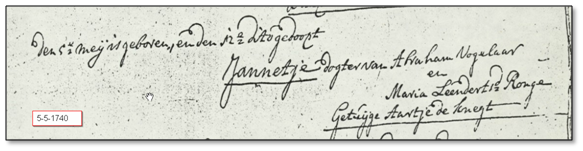 den 5en meij is geboren, en den 12e dito gedoopt
Jannetje dogter van Abraham Vogelaar
en
Maria Leendertsd Ronge
Getuijge Aartje de Knegt
5-5-1740